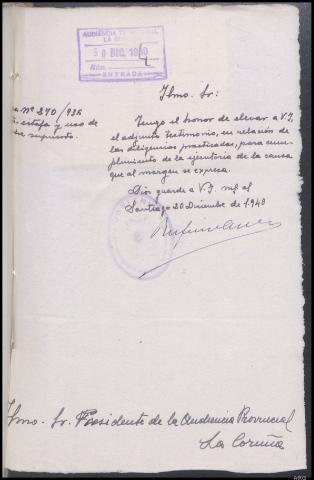 AUDIENCIA
LA
30 DIC. 1940
Núm.
ENTRADA
Ilmo. Sr:
Nº 270/936
estafa y uso de
supuesto.
Tengo el honor de elevar a V.I.
el adjunto testimonio, en relación de
las diligencias practicadas, para cum-
plimiento de la ejecutoria de la causa
que al margen se expresa.
Dios guarde a V.I. ms. as
Santiago 20 Diciembre de 1.940
Ilmo. Sr. Presidente de la Audiencia Provincial
La Coruña